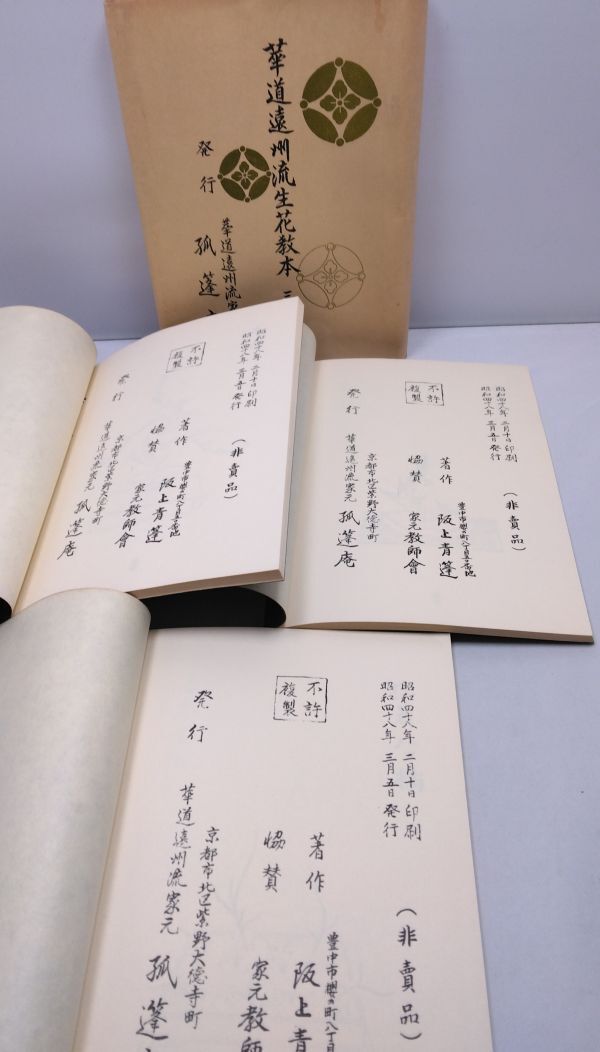 華道遠州流生花教本 三
発行
華道遠州流家
孤篷
昭和四十八年 二月十日 印刷
昭和四十八年 三月五日 発行
(非賣品)
不許
複製
著作
豊中市櫻の町八丁目
阪上青篷
協賛
家元教師會
発行
京都市北区紫野大徳寺町
華道遠州流家元
孤篷庵
昭和四十八年 二月十日 印刷
昭和四十八年 三月五日 発行
(非賣品)
不許
複製
著作
豊中市櫻の町八丁目
阪上青篷
協賛
家元教師會
発行
京都市北区紫野大徳寺町
華道遠州流家元
孤篷庵
昭和四十八年 二月十日 印刷
昭和四十八年 三月五日 発行
(非賣品)
不許
複製
著作
豊中市櫻の町八丁目
阪上青
協賛
家元教師
発行
京都市北区紫野大徳寺町
華道遠州流家元
孤篷